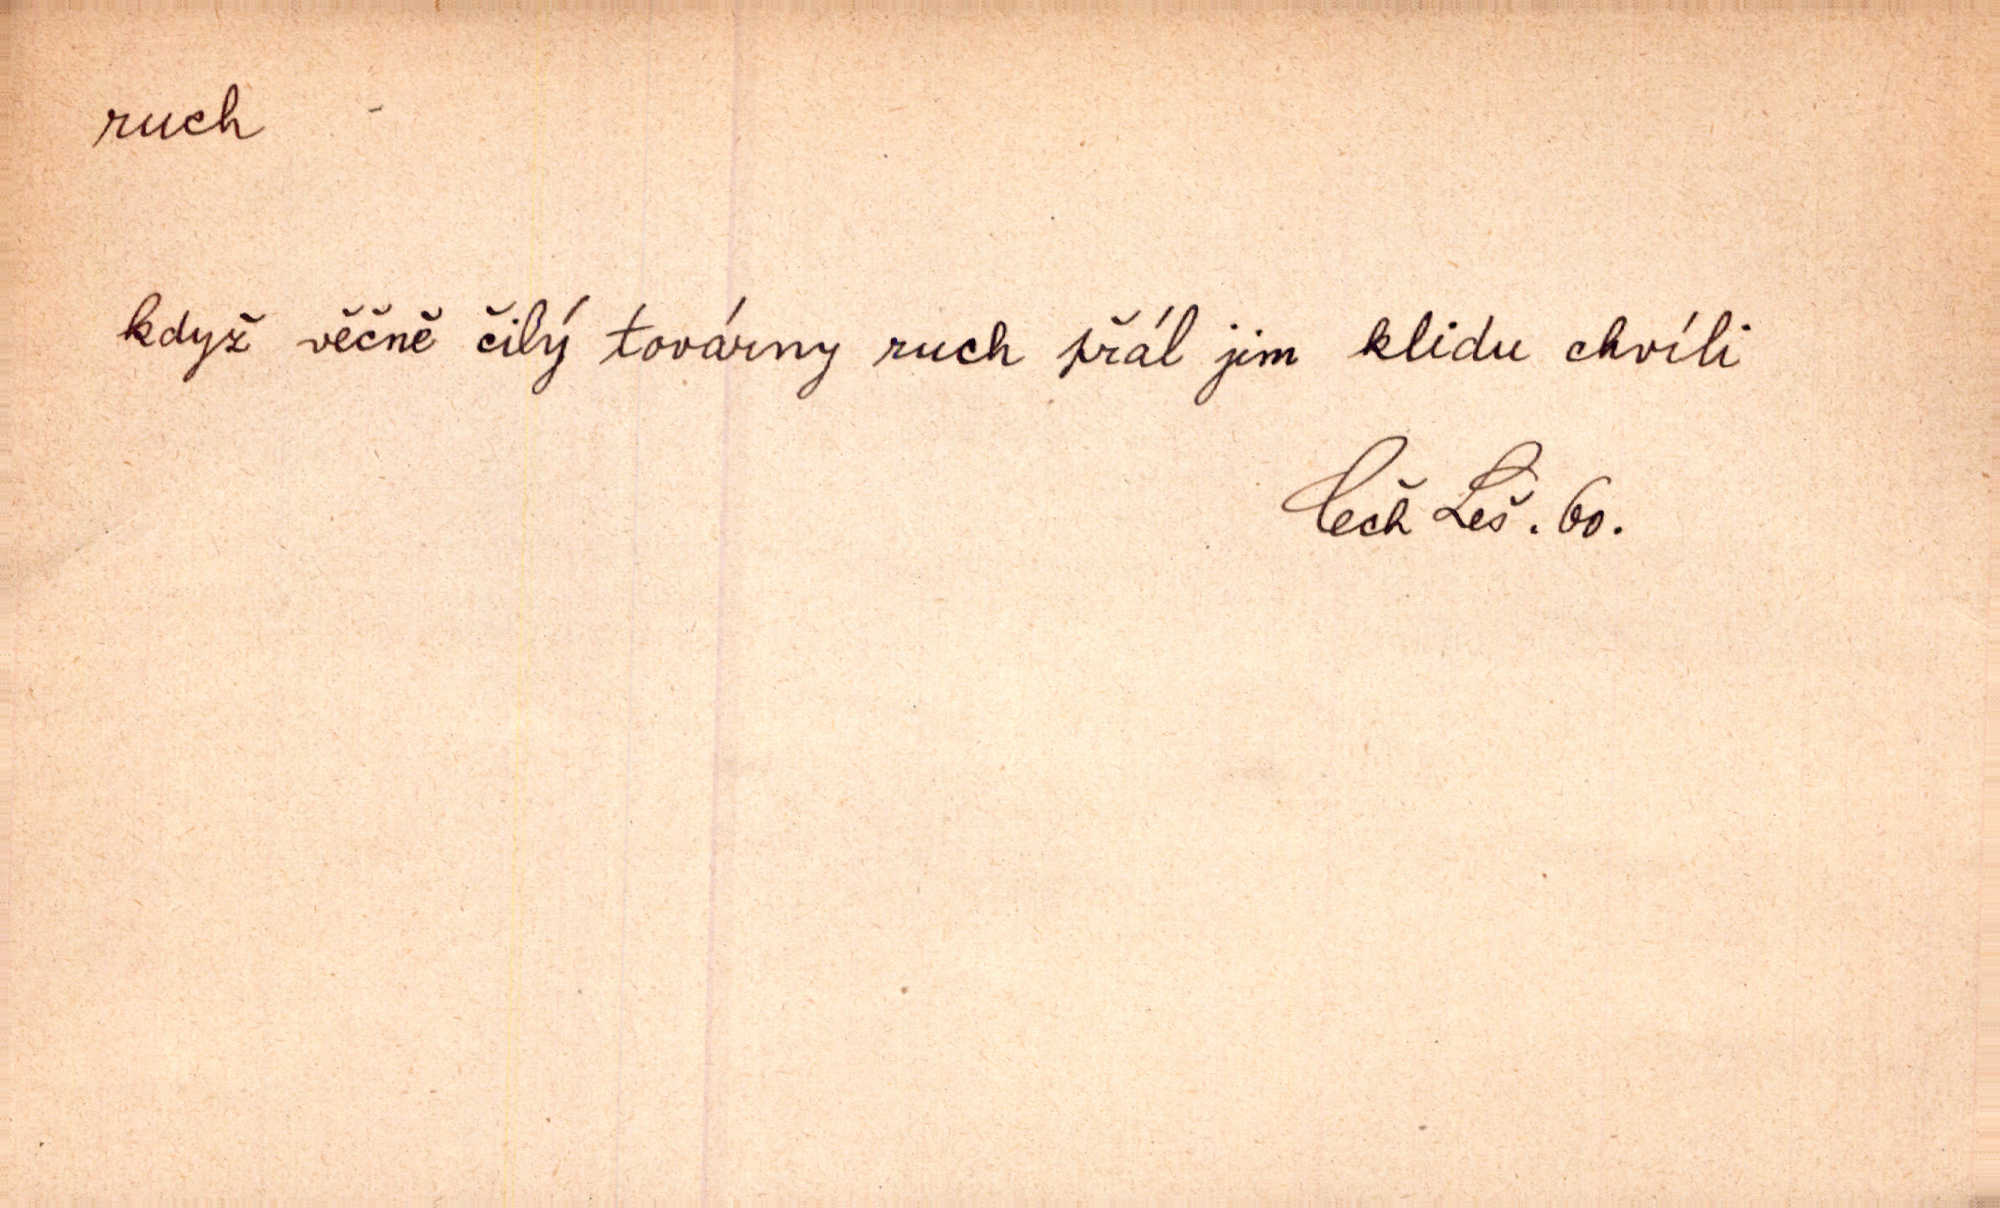 ruch -
když věčně čilý továrny ruch přál jim klidu chvíli
Čech Leš. 60.